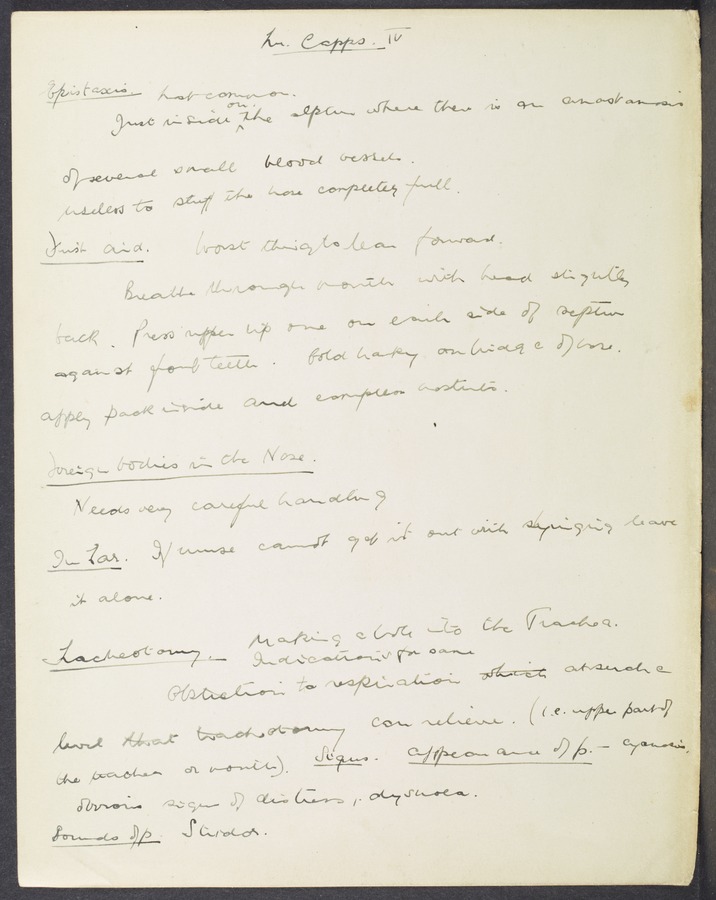 Mr. Capps. IV
Epistaxis. Most common.
Just inside on the septum where there is an anastomosis
of several small blood vessels.
useless to stuff the nose completely full.
First aid. Worst thing to lean forward.
Breathe through mouth with head slightly
back. Press upper lip one on each side of septum
against front teeth. Cold on bridge of nose.
apply pack inside and compress nostrils.
Foreign bodies in the Nose.
Needs very careful handling
In Ear. If nurse cannot get it out with syringing leave
it alone.
Tracheotomy. Making a hole into the Trachea.
Indications for same
Obstruction to respiration which at such a
level that tracheotomy can relieve. (i.e. upper part of
the trachea or mouth). Signs. Appearance of p. - cyanosis,
obvious signs of distress, dyspnoea.
Sounds of p. Stridor.